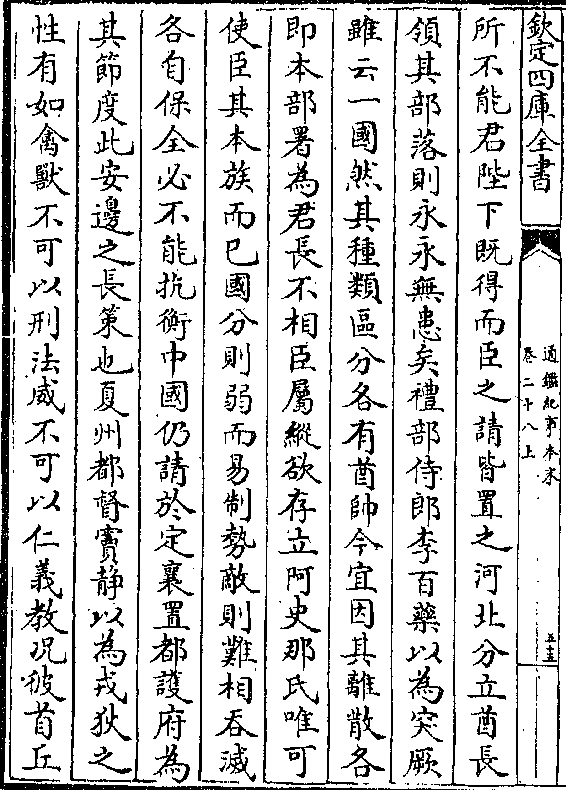 欽定四庫全書
通鑑紀事本末
卷二十八上
五十五
所不能君陛下既得而臣之請皆置之河北分立酋長
領其部落則永永無患矣禮部侍郎李百藥以為突厥
雖云一國然其種類區分各有酋帥今宜因其離散各
即本部署為君長不相臣屬縱欲存立阿史那氏唯可
使臣其本族而已國分則弱而易制勢敵則難相吞滅
各自保全必不能抗衡中國仍請於定襄置都護府為
其節度此安邊之長策也夏州都督竇静以為戎狄之
性有如禽獸不可以刑法威不可以仁義教况彼首丘